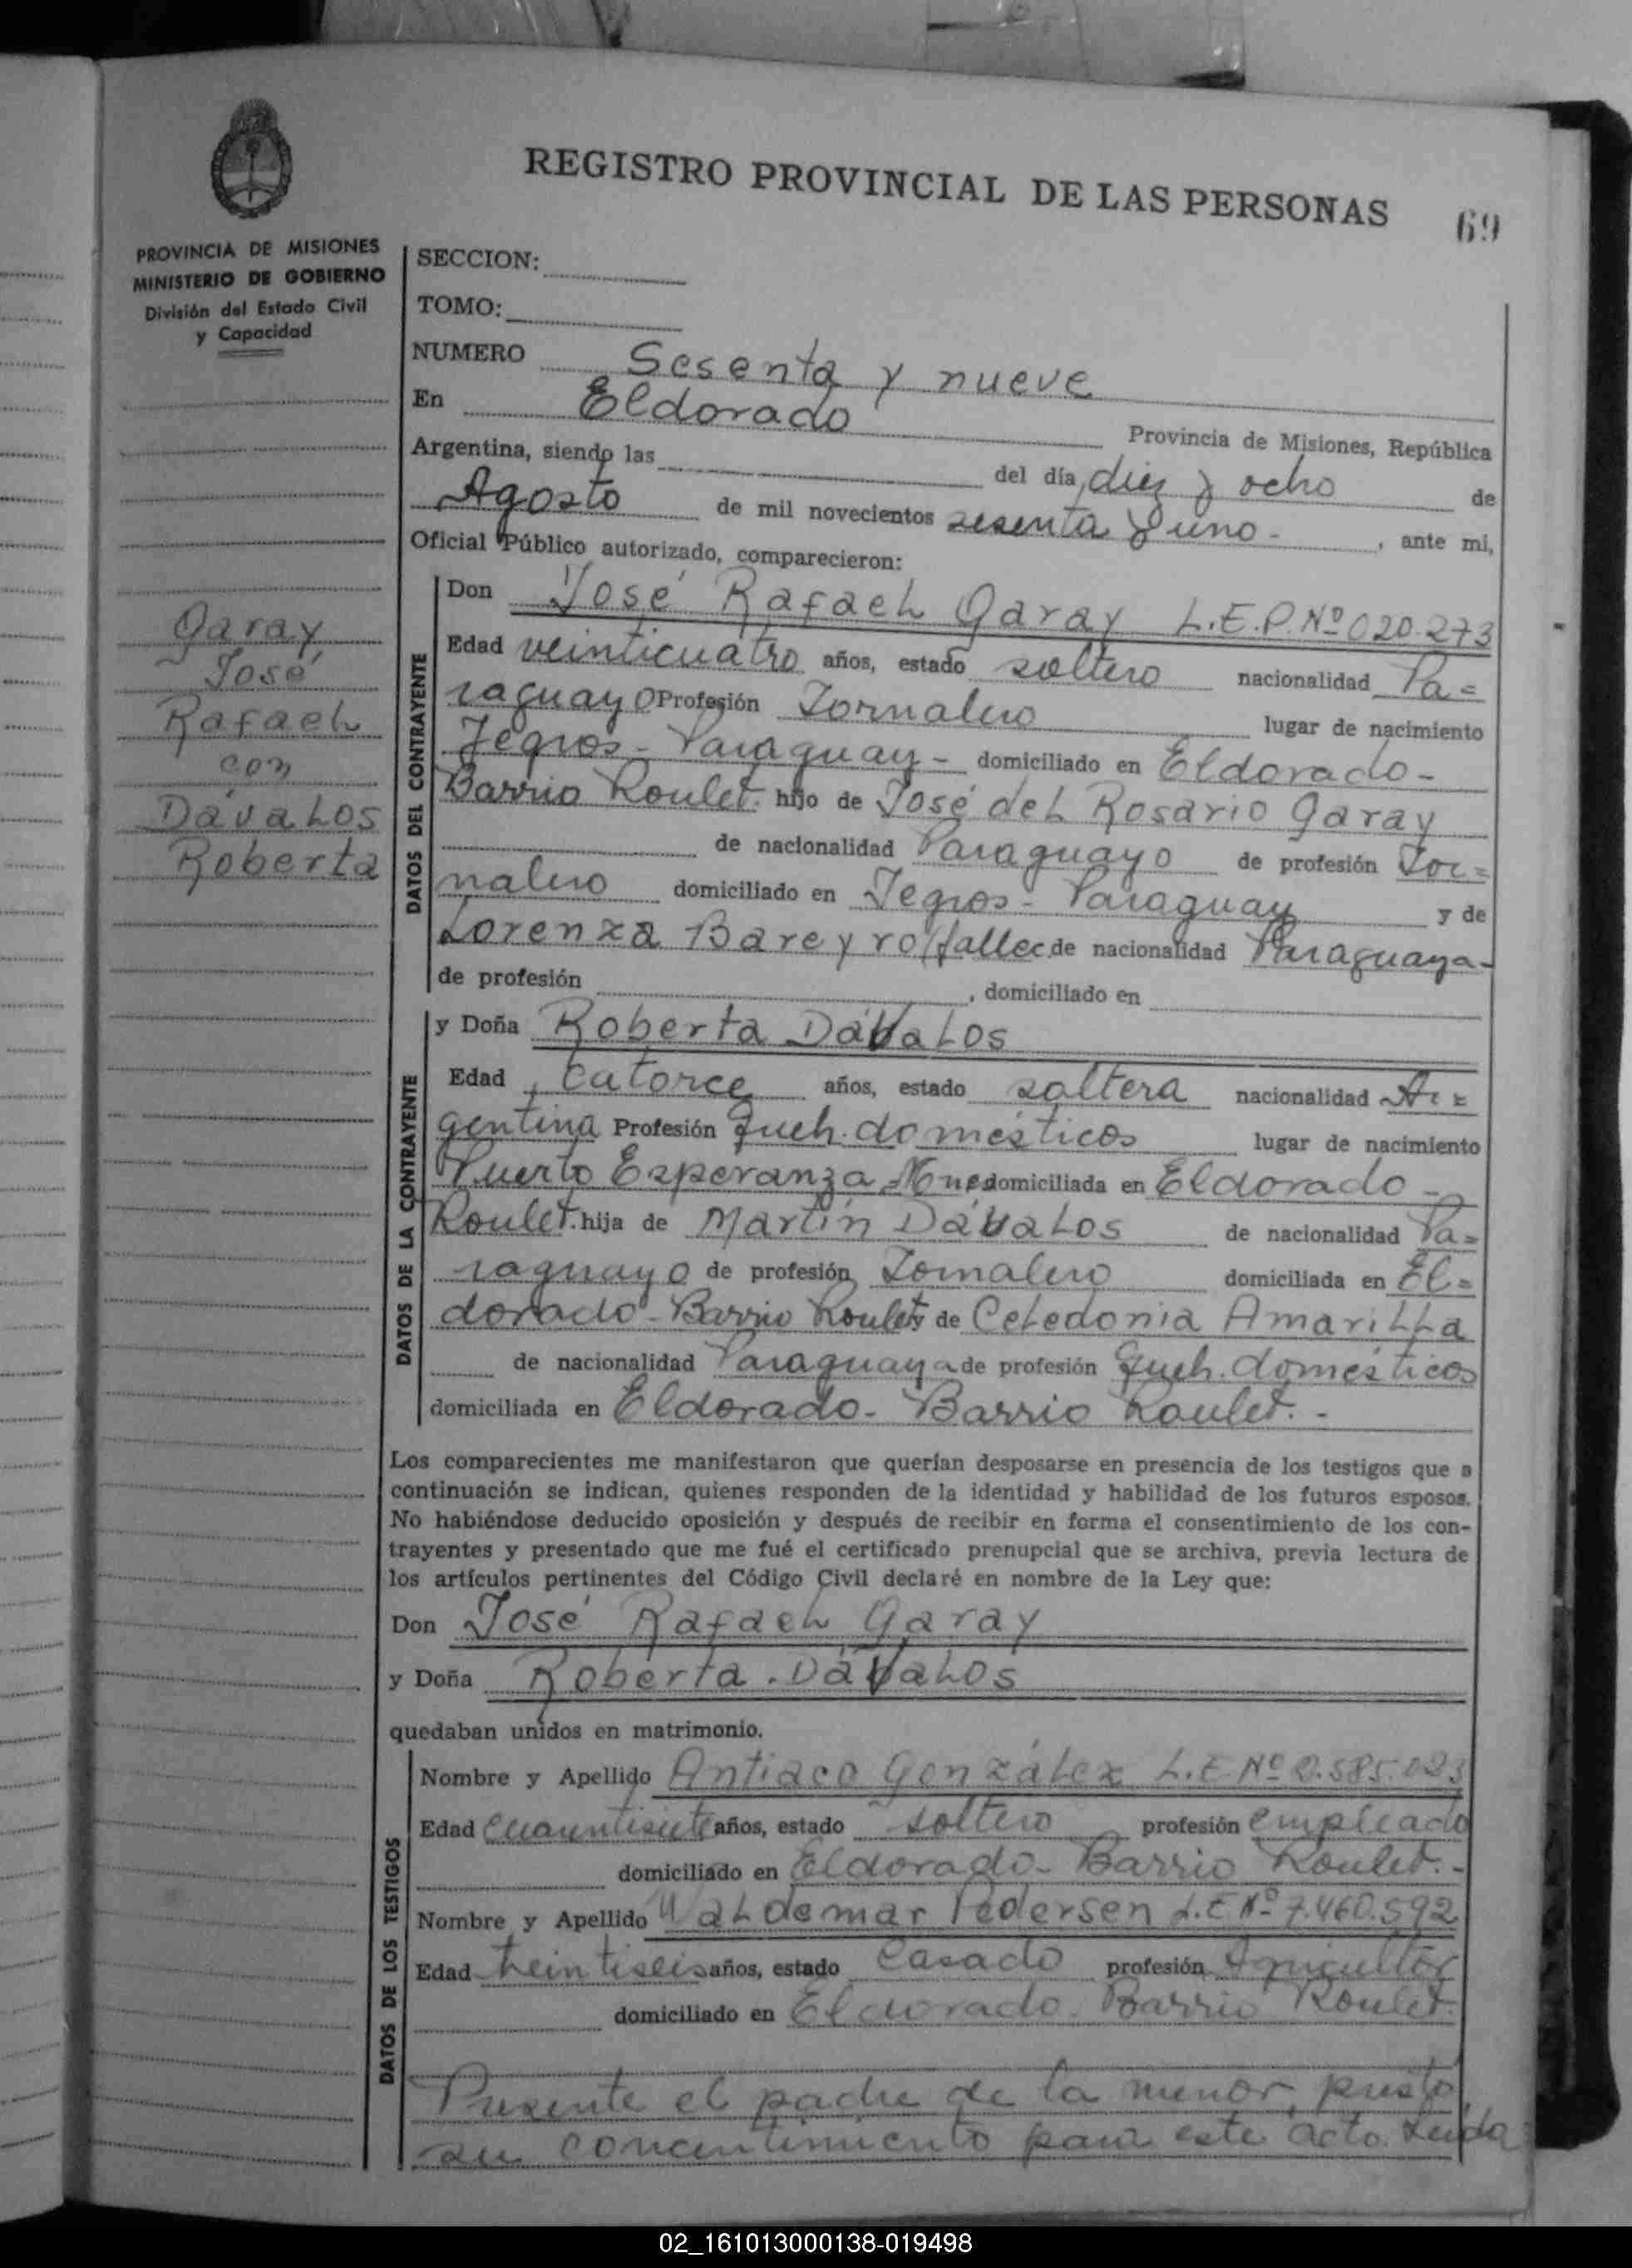 REGISTRO PROVINCIAL DE LAS PERSONAS
69
PROVINCIA DE MISIONES
MINISTERIO DE GOBIERNO
División del Estado Civil
y Capacidad
SECCION:
TOMO:
NUMERO Sesenta y nueve
En Eldorado Provincia de Misiones, República
Argentina, siendo las del día diez y ocho de
Agosto de mil novecientos sesenta y uno - , ante mi,
Oficial Público autorizado, comparecieron:
Garay
José
Rafael
con
Dávalos
Roberta
DATOS DEL CONTRAYENTE
Don José Rafael Garay L.E.P. Nº 020.273
Edad veinticuatro años, estado soltero nacionalidad Pa=
raguayo Profesión Jornalero lugar de nacimiento
Yegros - Paraguay - domiciliado en Eldorado -
Barrio Roulet. hijo de José del Rosario Garay
de nacionalidad Paraguayo de profesión Jor=
nalero domiciliado en Yegros - Paraguay y de
Lorenza Bareyro (fallec. de nacionalidad Paraguaya -
de profesión , domiciliado en
DATOS DE LA CONTRAYENTE
y Doña Roberta Dávalos
Edad catorce años, estado soltera nacionalidad Ar=
gentina Profesión Queh. domésticos lugar de nacimiento
Puerto Esperanza Mnes domiciliada en Eldorado -
Roulet. hija de Martín Dávalos de nacionalidad Pa=
raguayo de profesión Jornalero domiciliada en El=
dorado - Barrio Roulet y de Celedonia Amarilla
de nacionalidad Paraguaya de profesión Queh. domésticos
domiciliada en Eldorado - Barrio Roulet. -
Los comparecientes me manifestaron que querían desposarse en presencia de los testigos que a
continuación se indican, quienes responden de la identidad y habilidad de los futuros esposos.
No habiéndose deducido oposición y después de recibir en forma el consentimiento de los con-
trayentes y presentado que me fué el certificado prenupcial que se archiva, previa lectura de
los artículos pertinentes del Código Civil declaré en nombre de la Ley que:
Don José Rafael Garay
y Doña Roberta Dávalos
quedaban unidos en matrimonio.
DATOS DE LOS TESTIGOS
Nombre y Apellido Antiaco González L.E. Nº 2.585.023
Edad cuarentisiete años, estado soltero profesión empleado
domiciliado en Eldorado - Barrio Roulet. -
Nombre y Apellido Waldemar Pedersen L.E. Nº 7.460.592
Edad treintiseis años, estado Casado profesión Agricultor
domiciliado en Eldorado - Barrio Roulet.
Presente el padre de la menor, presto
su concentimiento para este acto. Leida
02_161013000138-019498